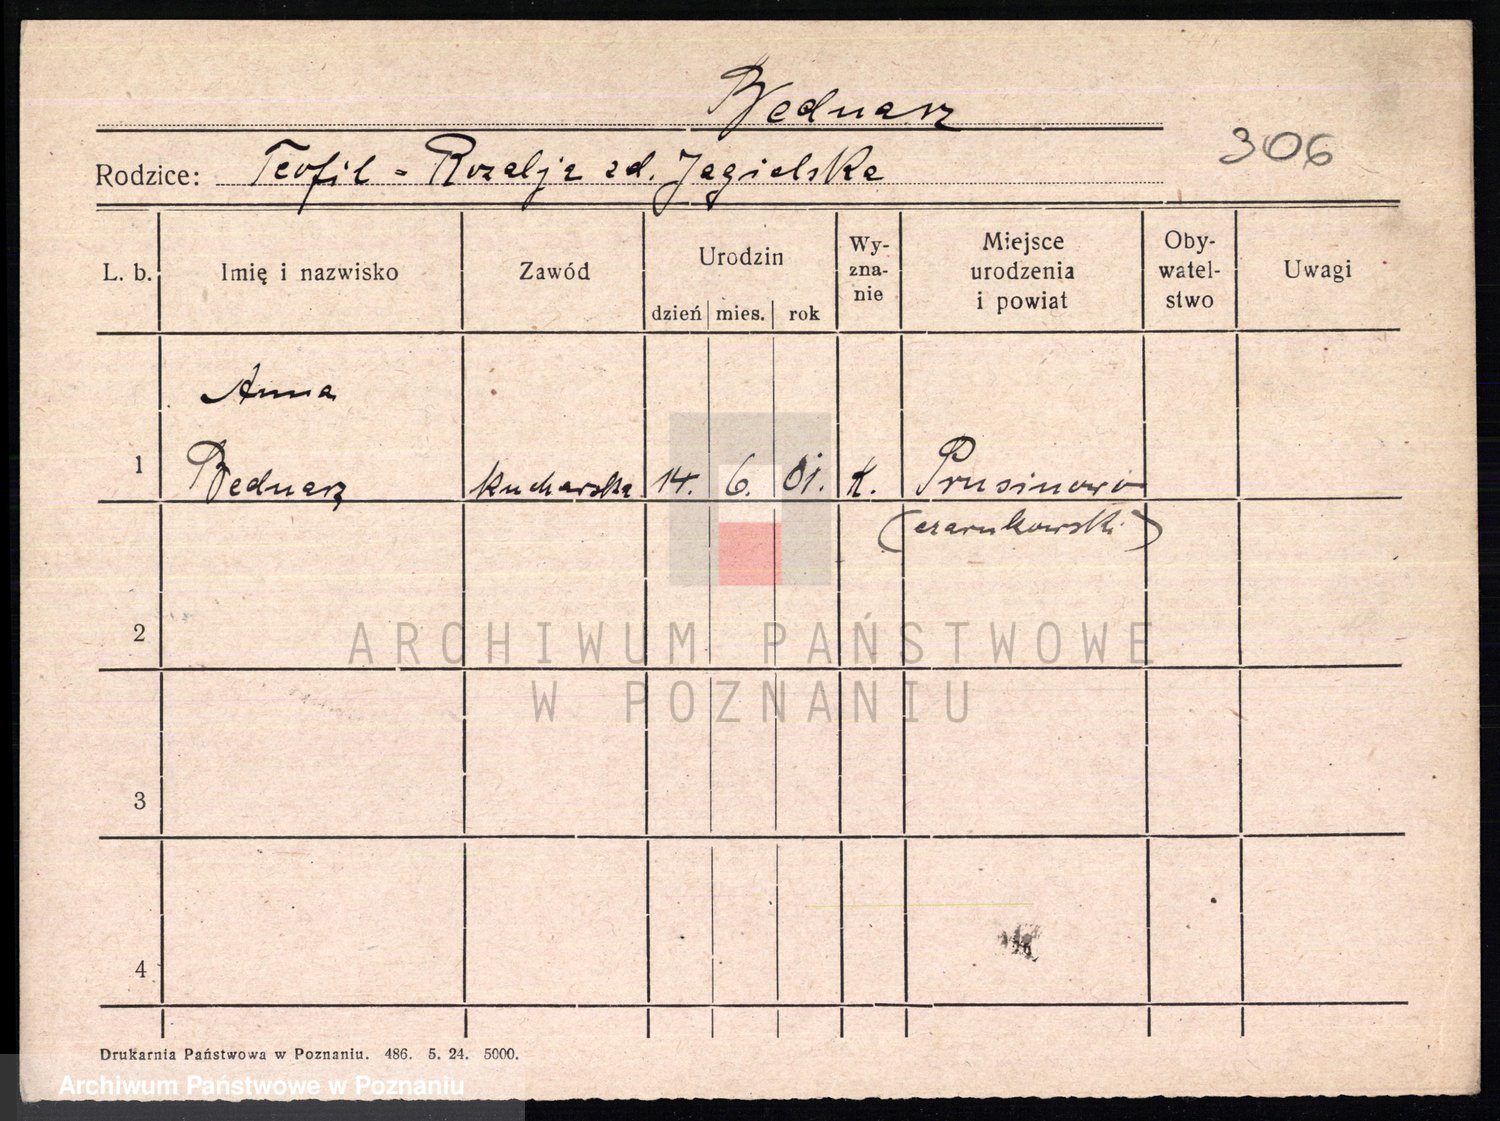 Bednarz
306
Rodzice: Teofil - Rozalja zd. Jagielska
L. b. Imię i nazwisko Zawód Urodzin dzień mies. rok Wy-zna-nie Miejsce urodzenia i powiat Oby-watel-stwo Uwagi
Anna
1 Bednarz kucharka 14. 6. 01. k. Prusinowo
(czarnkowski)
2
ARCHIWUM PAŃSTWOWE
W POZNANIU
3
4
Drukarnia Państwowa w Poznaniu. 486. 5. 24. 5000.
Archiwum Państwowe w Poznaniu